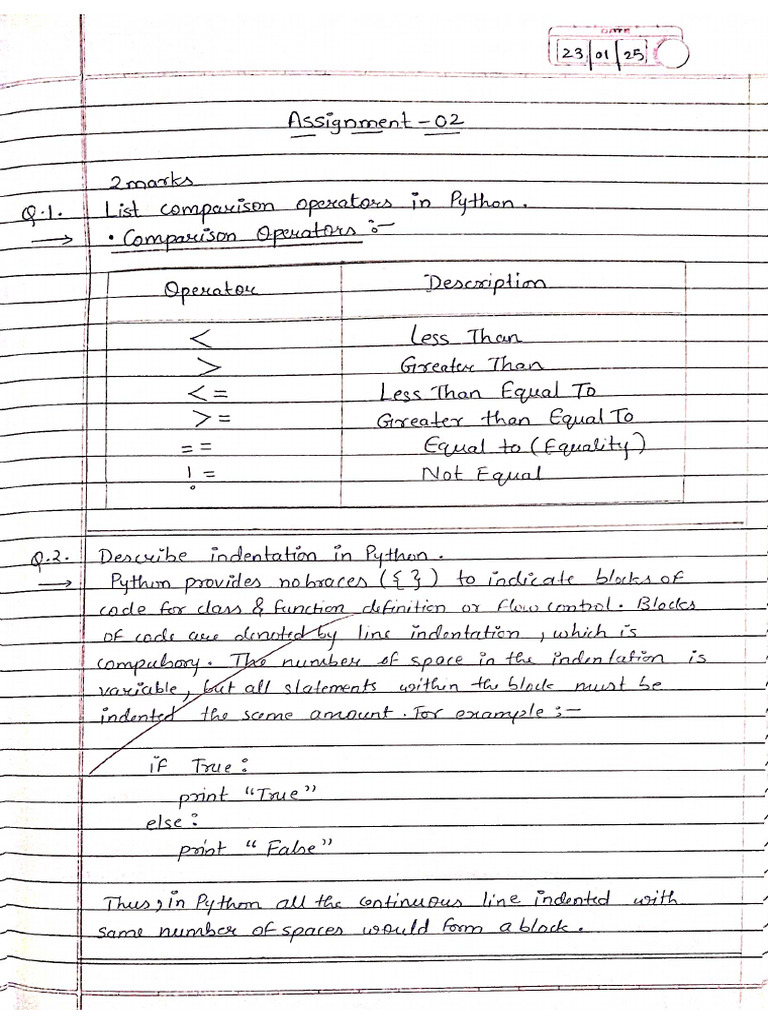 DATE
23 01 25
Assignment - 02
2 marks
Q.1. List comparison operators in Python.
→ • Comparison Operators :-
Operator Description
< Less Than
> Greater Than
<= Less Than Equal To
>= Greater than Equal To
== Equal to (Equality)
!= Not Equal
Q.2. Describe indentation in Python.
→ Python provides no braces ({ }) to indicate blocks of
code for class & function definition or flow control. Blocks
of code are denoted by line indentation, which is
compulsory. The number of space in the indentation is
variable, but all statements within the block must be
indented the same amount. For example :-
if True:
print "True"
else:
print " False"
Thus, in Python all the continuous line indented with
same number of spaces would form a block.